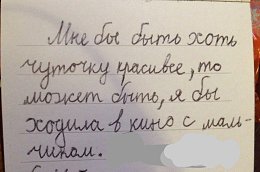 Мне бы быть хоть
чуточку красивее, то
может быть, я бы
ходила в кино с маль-
чиком.